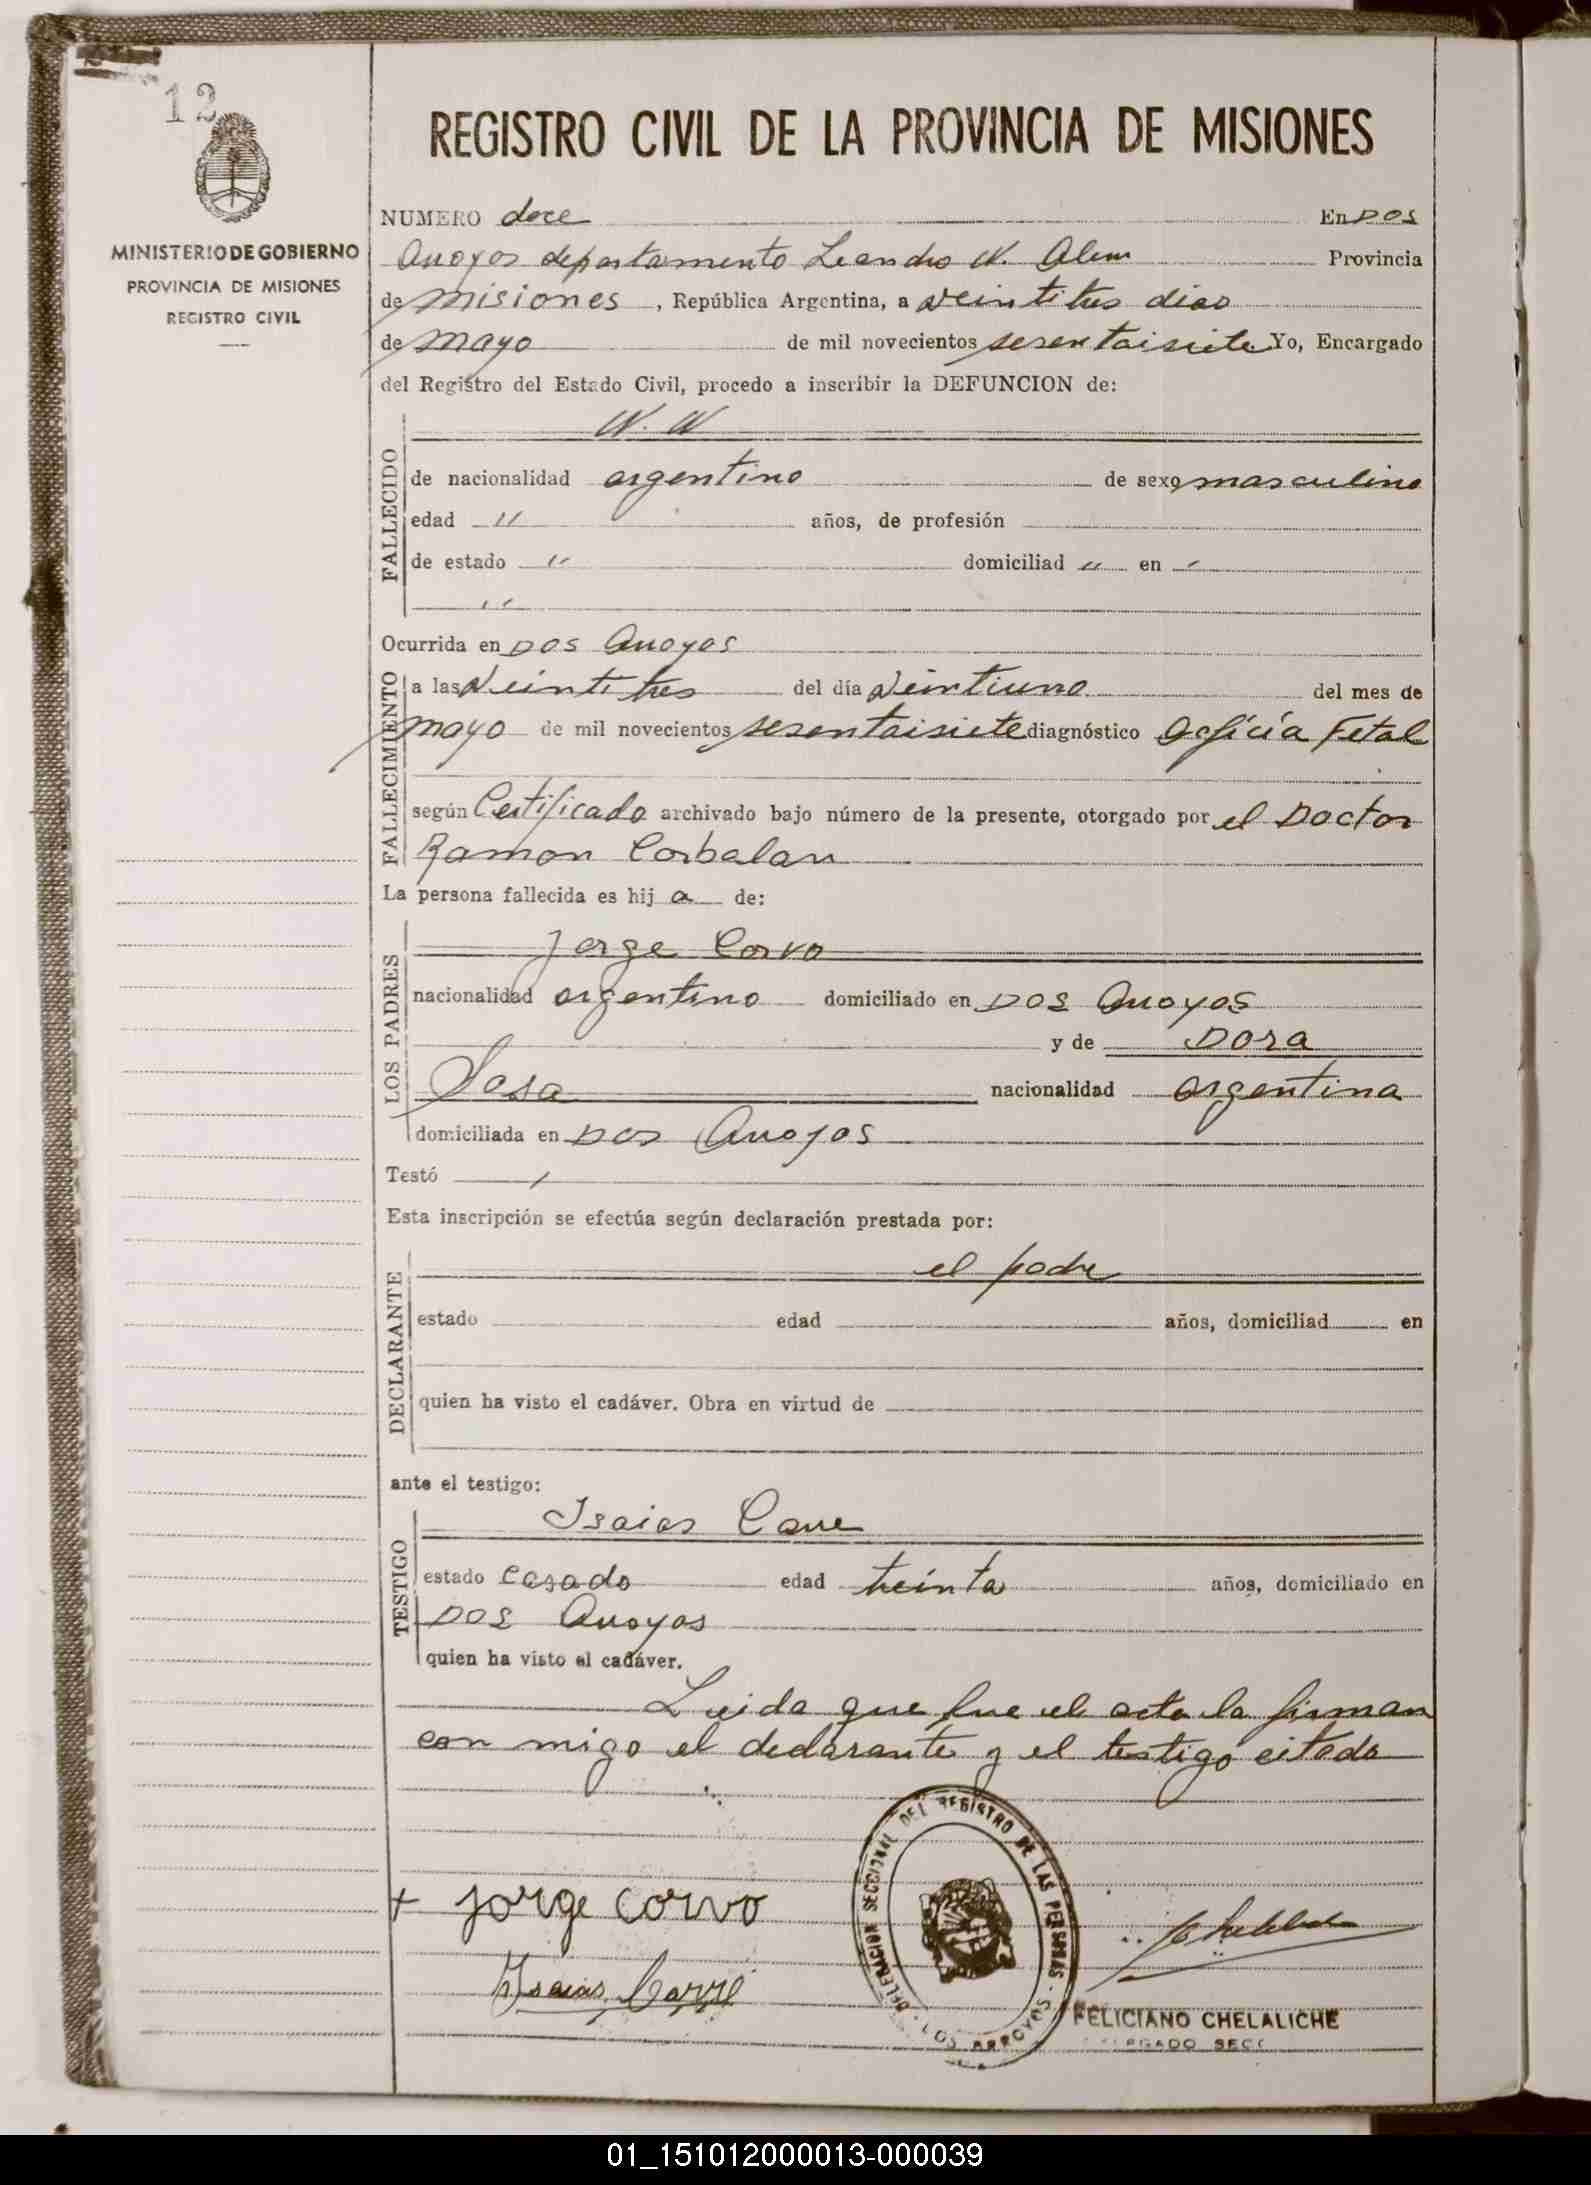 12
REGISTRO CIVIL DE LA PROVINCIA DE MISIONES
MINISTERIO DE GOBIERNO
PROVINCIA DE MISIONES
REGISTRO CIVIL
NUMERO doce En Dos
Arroyos departamento Leandro N. Alem Provincia
de misiones, República Argentina, a veintitres dias
de mayo de mil novecientos sesentaisiete Yo, Encargado
del Registro del Estado Civil, procedo a inscribir la DEFUNCION de:
FALLECIDO
N. N
de nacionalidad argentino de sexo masculino
edad " años, de profesión
de estado " domiciliad " en
"
Ocurrida en Dos Arroyos
FALLECIMIENTO
a las veintitres del día veintiuno del mes de
mayo de mil novecientos sesentaisiete diagnóstico Fetal
según Certificado archivado bajo número de la presente, otorgado por el Doctor
Ramon Corbalan
La persona fallecida es hij a de:
LOS PADRES
Jorge Corvo
nacionalidad argentino domiciliado en Dos Arroyos
y de Dora
Sosa nacionalidad argentina
domiciliada en Dos Arroyos
Testó /
Esta inscripción se efectúa según declaración prestada por:
DECLARANTE
el padre
estado edad años, domiciliad en
quien ha visto el cadáver. Obra en virtud de
ante el testigo:
TESTIGO
Isaias Carre
estado Casado edad treinta años, domiciliado en
Dos Arroyos
quien ha visto el cadáver.
Leida que fue el acta la firman
con migo el declarante y el testigo citado
+ Jorge corvo
Isaias Carré
DELEGACION SECCIONAL DEL REGISTRO DE LAS PERSONAS - DOS ARROYOS -
FELICIANO CHELALICHE